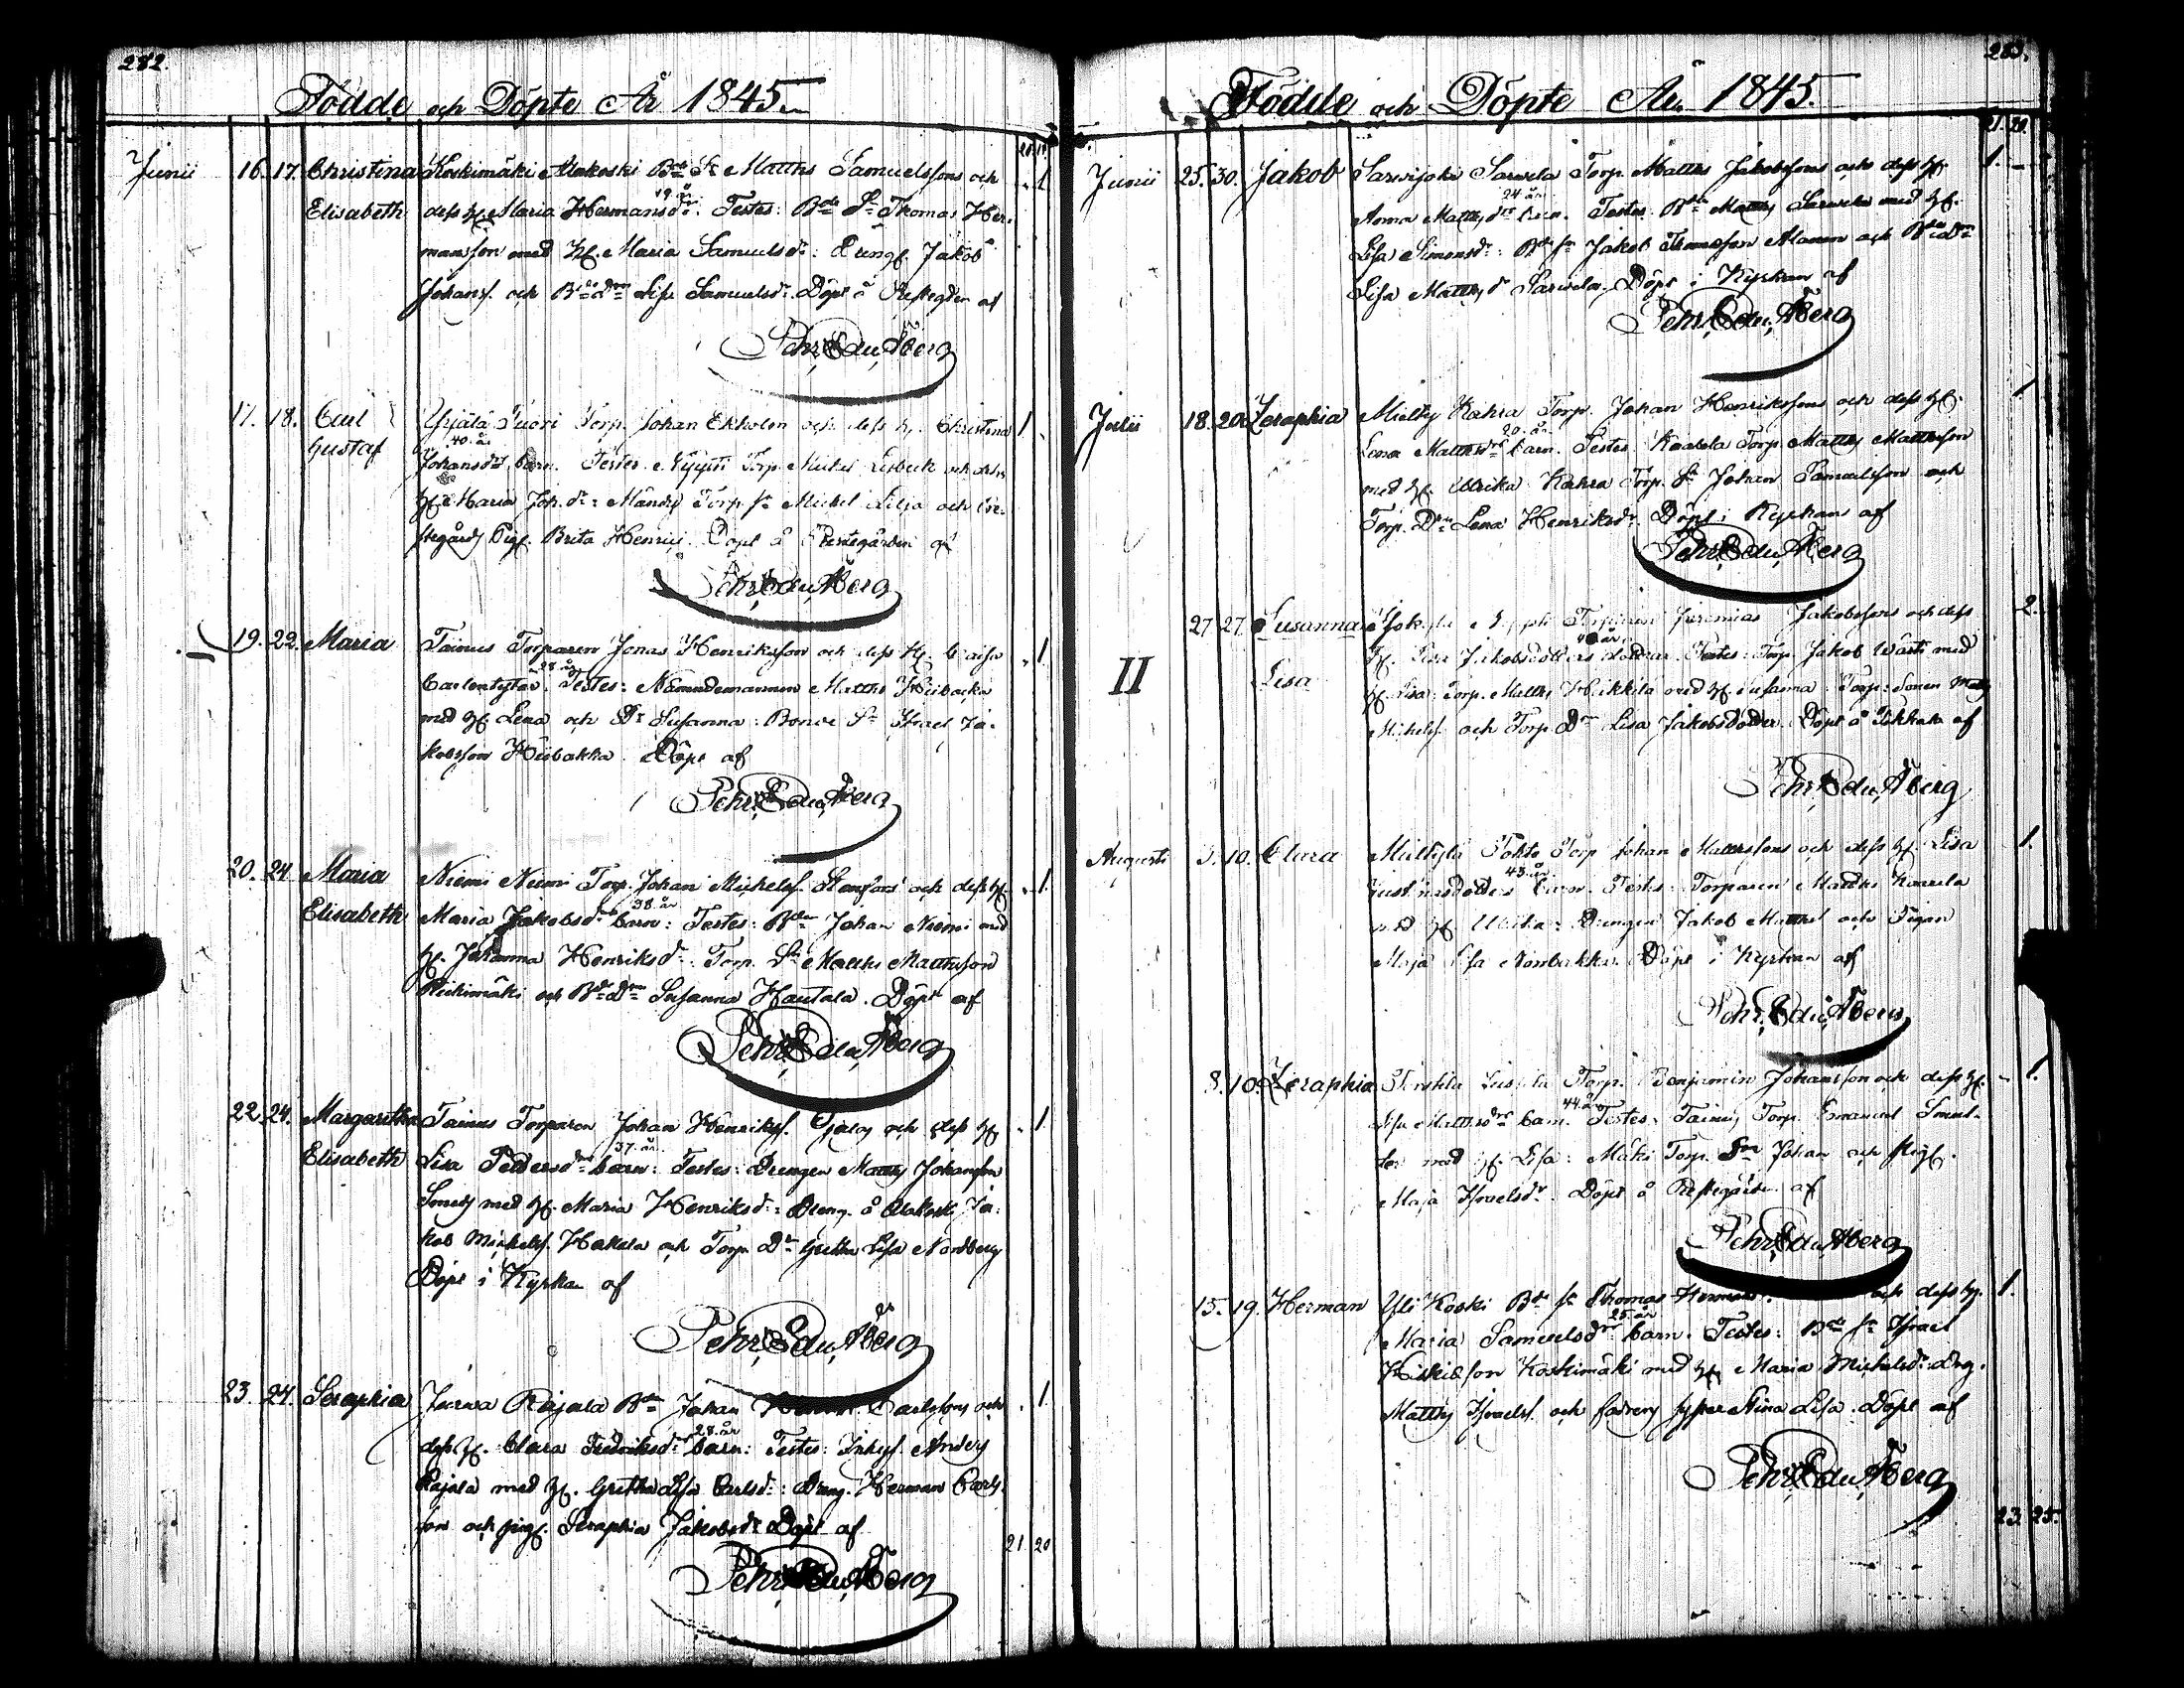 282.
Födde och Döpte År 1845
20. 19.
Junii 16. 17. Christina Koskimäki Alakoski Bde Sn Matths Samuelssons och 1.
Elisabeth dess H. Maria Hermansdr: 19 år Testes: Bde Sn Thomas Her-
mansson med H. Maria Samuelsdr: Dreng. Jakob
Johanss. och Bde Drn Lisa Samuelsdr. Döpt å Prestgden af
Pehr Edu. Åberg
17. 18. Carl Yrjälä Tuori Torp. Johan Ekholm och dess H. Christina 1.
Gustaf Johansdrs 40. år barn. Testes Torp. Michel och dess
H. Maria Joh. dr: Torp. Sn Michel Lilja och Pre-
stegårds Pig. Brita Henrics. Döpt å Prestegården af
Pehr Edu. Åberg
19. 22. Maria Tainus Torparen Jonas Henriksson och dess H. Caisa 1.
Carlentytär. 28 år Testes: Nämndemannen Matths Hiibacka
med H. Lena och Dr Susanna: Bonde Sn Israel Ja-
kobsson Hiibakka. Döpt af
Pehr Edu. Åberg
20. 24. Maria Niemi Niemi Torp. Johan Michelss. Stenfors och dess H. 1.
Elisabeth Maria Jakobsdrs 38. år barn: Testes: Bden Johan Niemi med
H. Johanna Henriksdr: Torp. Sn Matths Matthsson
Reikimäki och Bde Drn Susanna Hautala. Döpt af
Pehr Edu. Åberg
22. 24. Margaretha Tainus Torparen Johan Henrikss. och dess H. 1.
Elisabeth Lisa Pettersdrs 37. år barn: Testes: Drengen Matts Johansson
med H. Maria Henriksdr: Dreng. å Alakoski Ja-
kob Michelss. Hakala och Torp. Dr Gretha Lisa Nordberg
Döpt i Kyrkan af
Pehr Edu. Åberg
23. 24. Seraphia Jurva Rajala Bde Johan Carlssons och 1.
dess H. Clara Fredriksdrs 28. år barn: Testes: Inhys. Anders
Rajala med H. Gretha Lisa Carlsdr: Dreng. Herman Carls-
son och pig. Seraphia Jakobsdr. Döpt af
21. 20
Pehr Edu. Åberg
283.
Födde och Döpte År 1845.
21. 20.
Junii 25. 30. Jakob Sarvijoki Sarvela Torp. Matths Jakobssons och dess H. 1.
Anna Mattsdrs 24 år barn. Testes. Bden Matts Sarvela med H.
Lisa Simonsdr: Bde Sn Jakob Thomasson och Bde Drn
Lisa Mattsdr Sarvela. Döpt i Kyrkan af
Pehr Edu. Åberg
Julii 18. 20. Zeraphia Miety Kahra Torp. Johan Henrikssons och dess H. 1
Lena Matthsdrs 20. år barn. Testes Torp. Matts Matthsson
med H. Ulrika Kahra Torp. Sn Johan Samuelsson och
Torp. Drn Lena Henriksdr. Döpt i Kyrkan af
Pehr Edu. Åberg
27. 27. Susanna Torparen Jeremias Jakobssons och dess 2.
II Lisa H. Lisa Jakobsdotters 40 år döttrar. Testes: Torp. Jakob med
H. Lisa: Torp. Matths Heikkilä med H. Susanna: Torp: Sonen Matts
Michelss. och Torp. Drn Lisa Jakobsdotter. Döpt å af
Pehr Edu. Åberg
Augusti 3. 10. Clara Miettylä Tokto Torp Johan Mattssons och dess H. Lisa 1.
Gustavsdotters 43. år barn. Testes: Torparen Matths
med H. Ulrika: Drengen Jakob Matths. och Pigan
Maja Lisa. Döpt i Kyrkan af
Pehr Edu. Åberg
8. 10. Zeraphia Torp. Benjamin Johansson och dess H. 1.
Lisa Mattsdrs 44. år barn. Testes: Tainus Torp. Emanuel
med H. Lisa: Mäki Torp. Sn Johan och Pig.
Maja Israelsdr. Döpt å Prestegården af
Pehr Edu. Åberg
15. 19. Herman Yli Koski Bde Sn Thomas och dess H. 1.
Maria Samuelsdrs 25. år barn. Testes: Bde Sn Israel
Koskimäki med H. Maria Michelsdr: Drg.
Matts Israelss. och fadrens syster Stina Lisa. Döpt af
Pehr Edu. Åberg
23. 25.